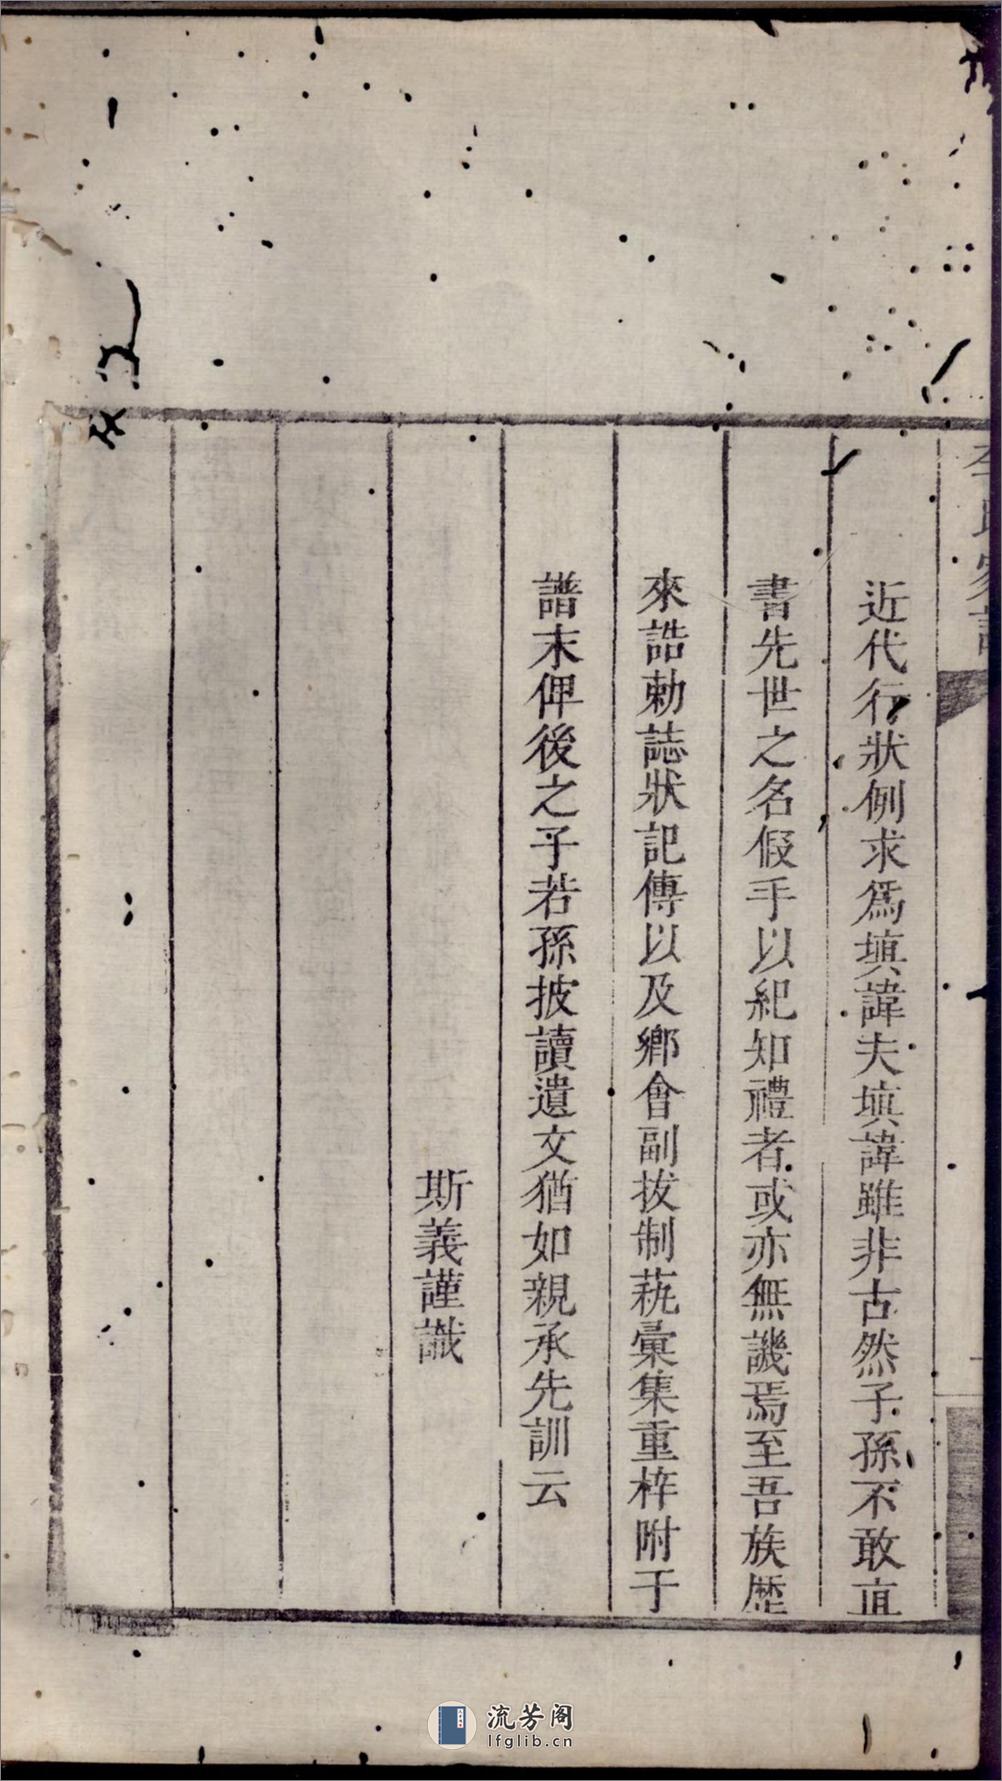 近代行狀例求爲塡諱夫塡諱雖非古然子孫不敢直
書先世之名假手以紀知禮者或亦無譏焉至吾族歴
來誥勅誌狀記傳以及鄉會副拔制蓺彙集重梓附于
譜末俾後之子若孫披讀遺文猶如親承先訓云
斯義謹識
流芳阁
lfglib.cn